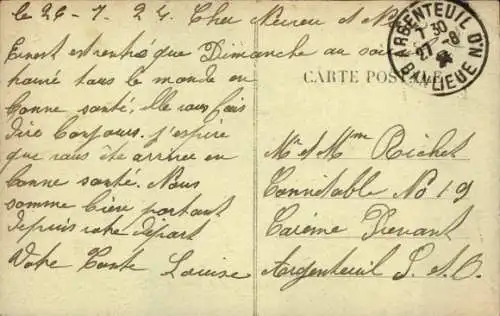 le 26-7.24. Cher Neveu et N
Ernest est rentré que Dimanche au soir
tous le monde en
bonne santé. Elle vous fais
dire Bonjours. J'espère
que vous ête arriver en
bonne santé. Nous
somme portant
depuis votre départ
Votre Tante Louise
ARGENTEUIL D.N
7 30
27 - 8
BANLIEUE
CARTE POSTALE
Mr et Mme Richet
Connétable No 19
Carême Prenant
Argenteuil S. et O.